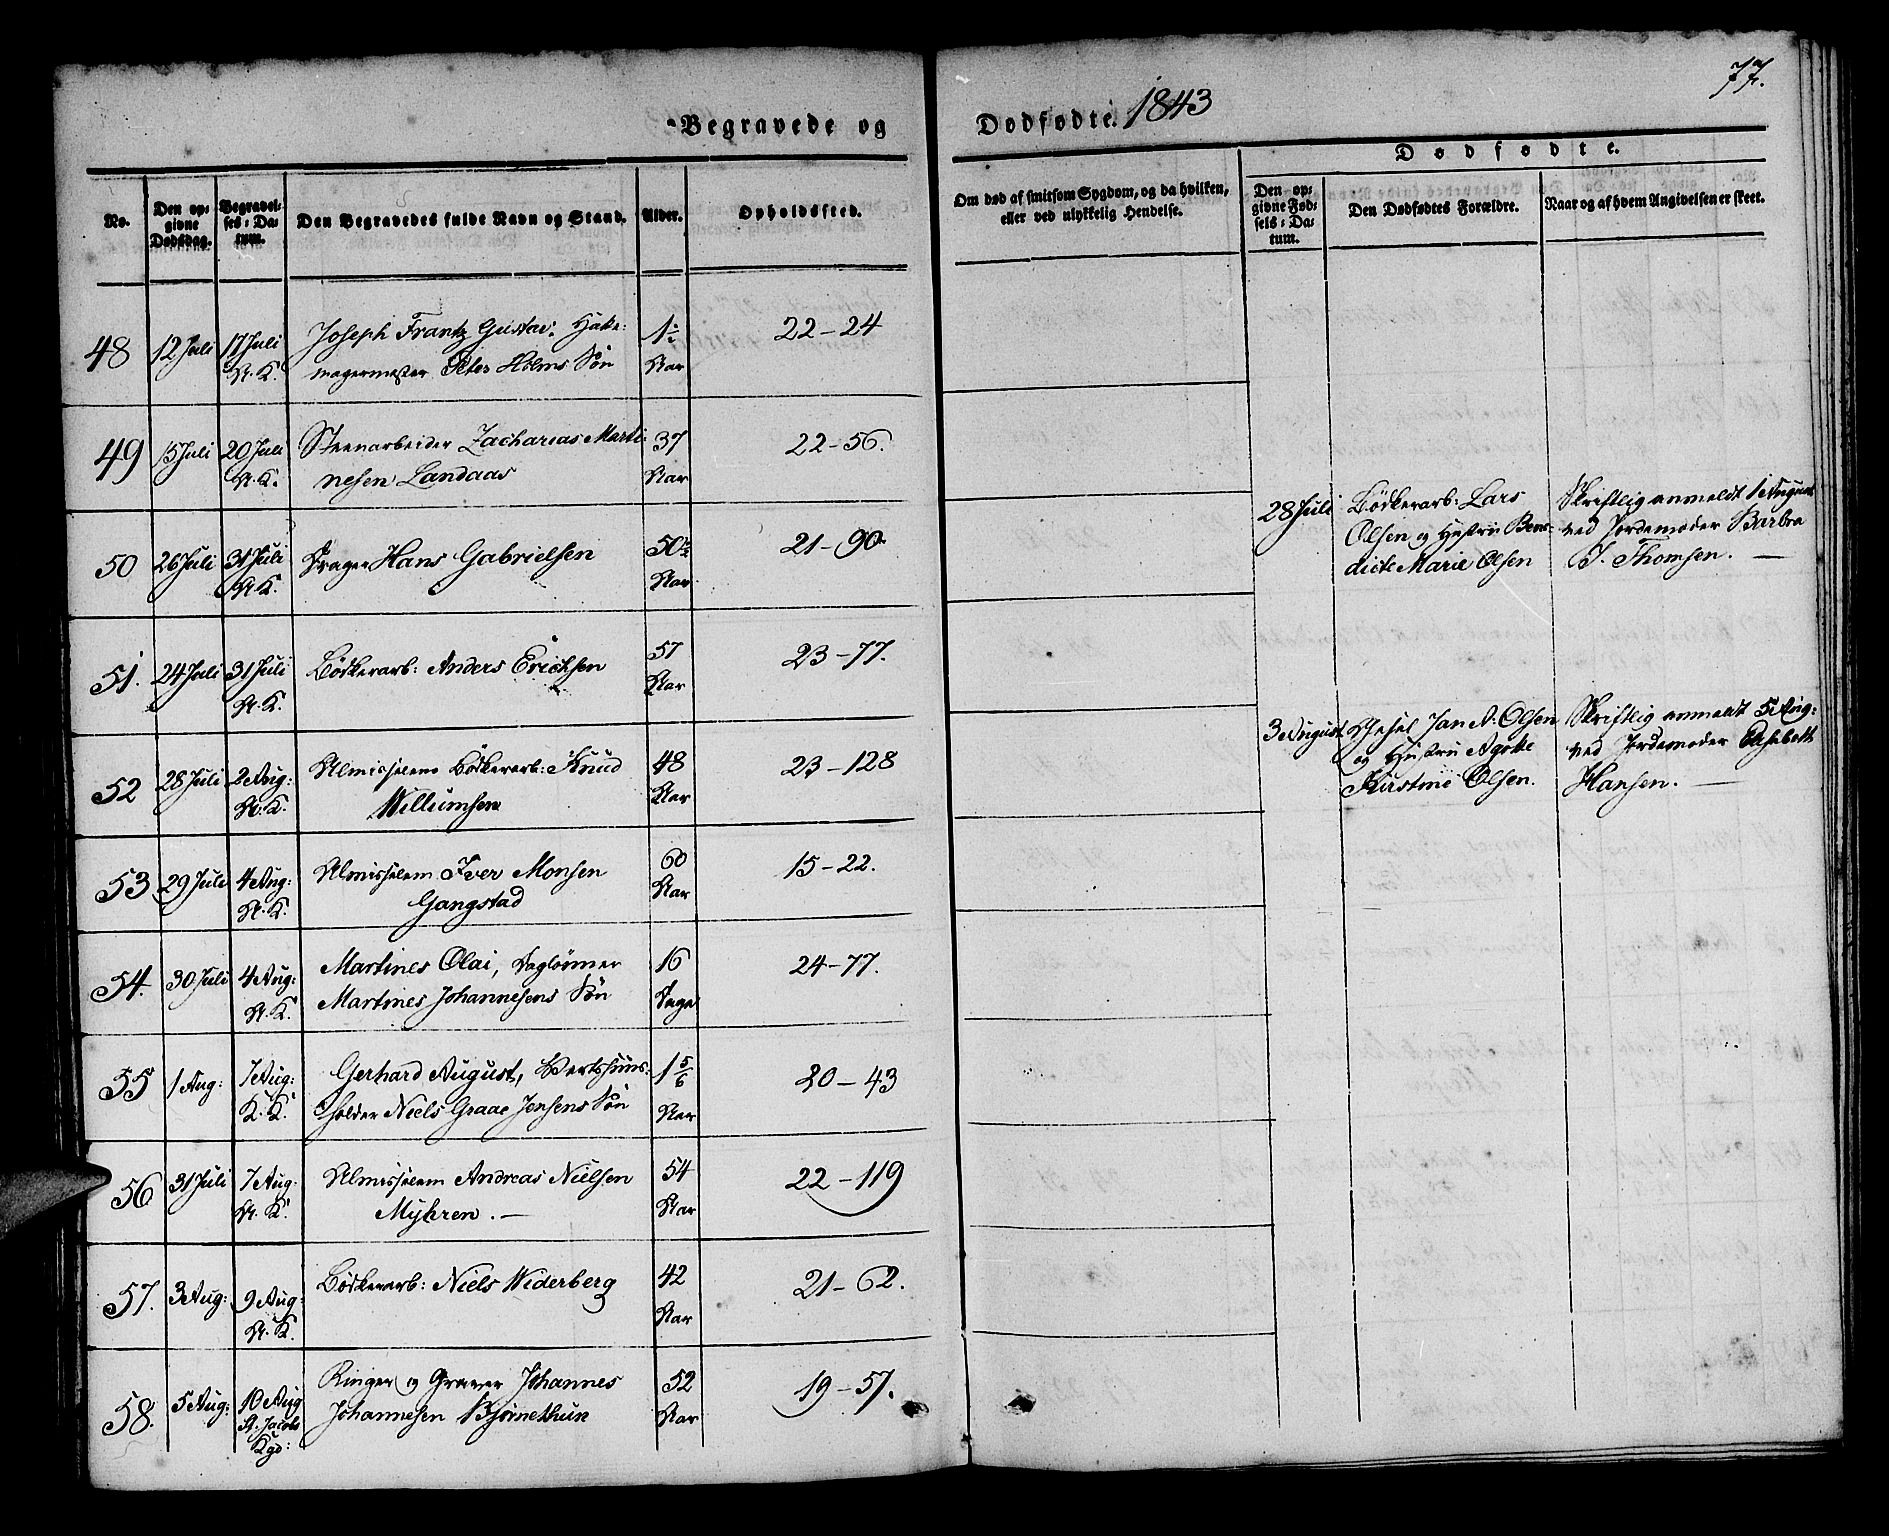 77.
Begravede og Dødfødte. 1843
Dødfødte.
No.
Den opgivne Dødsdag.
Begravelses-Datum.
Den Begravedes fulde Navn og Stand.
Alder.
Opholdssted.
Om død af smitsom Sygdom, og da hvilken,
eller ved ulykkelig Hendelse.
Den opgivne Fødsels-Datum.
Den Dødfødtes Forældre.
Naar og af hvem Angivelsen er skeet.
48 12 Juli 17 Juli Joseph Frantz Gustav: Hatte- 1½ 22-24
K. magermester Peter Holms Søn Aar
49 15 Juli 20 Juli Steenarbeider Zacharias Marti- 37 22-56.
K. nesen Landaas Aar
50 26 Juli 31 Juli Drager Hans Gabrielsen 50½ 21-90
K. Aar
51. 24 Juli 31 Juli Bødkerarb: Anders Erichsen 57 23-77.
K. Aar
52 28 Juli 2 Aug: Almisselem Bødkerarb: Knud 48 23-128
K. Willumsen Aar
53 29 Juli 4 Aug: Almisselem Iver Monsen 60 15-22.
K. Gangstad Aar
54. 30 Juli 4 Aug: Martines Olai, Daglønner 16 24-77.
K. Martines Johannesens Søn Dage
55 1 Aug: 7 Aug: Gerhard August, Vertshuus- 1 5/6 20-43
K. K. holder Niels Graae Jensens Søn Aar
56 31 Juli 7 Aug: Almisselem Andreas Nielsen 54 22-119
K. Myhren.— Aar
57. 3 Aug: 9 Aug: Bødkerarb: Niels Widerberg 42 21-62.
K. Aar
58. 5 Aug: 10 Aug Ringer og Graver Johannes 52 19-57.
St. Jacobs Johannesen Bjørnethun Aar
Kgd:
28 Juli Bødkerarb: Lars Skriftlig anmeldt 1 August
Olsen og Hustru Bene- ved Jordemoder Barbra
dicte Marie Olsen J. Thomsen. —
3 August Jan A. Olsen Skriftlig anmeldt 5 Aug:
og Hustru ved Jordemoder Elisabeth
Kirstine Olsen. Hansen. —